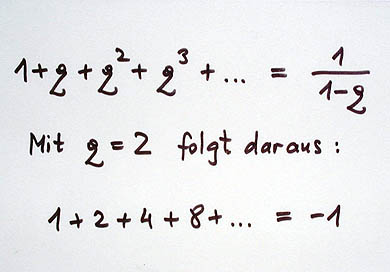 1 + q + q² + q³ + ... = 1/(1-q)
Mit q = 2 folgt daraus :
1 + 2 + 4 + 8 + ... = -1